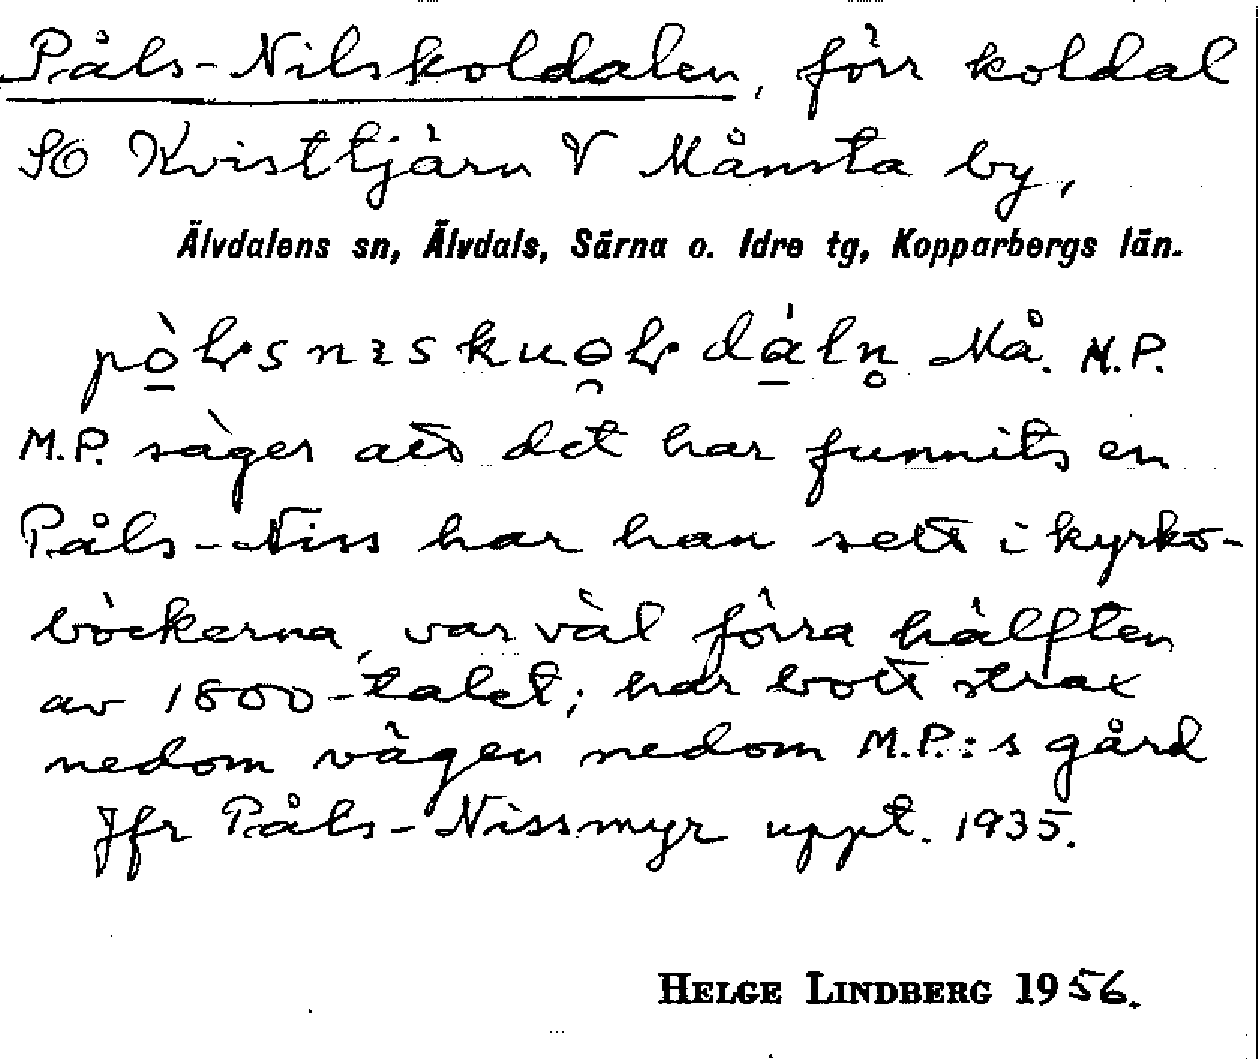 Påls-Nilskoldalen, förr koldal
SO Kvisttjärn V Månsta by,
Älvdalens sn, Älvdals, Särna o. Idre tg, Kopparbergs län.
Må. M.P.
M.P. säger att det har funnits en
Påls-Niss har han sett i kyrko-
böckerna, var väl förra hälften
av 1800-talet; har bott strax
nedom vägen nedom M.P.:s gård
Jfr Påls-Nissmyr uppt. 1935.
HELGE LINDBERG 1956.